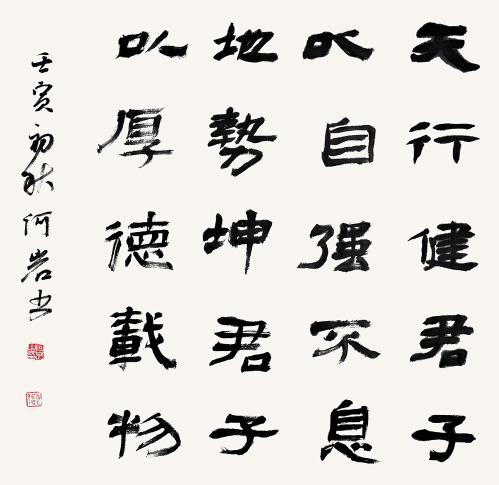 天行健君子
以自强不息
地勢坤君子
以厚德載物
壬寅初秋何岩书